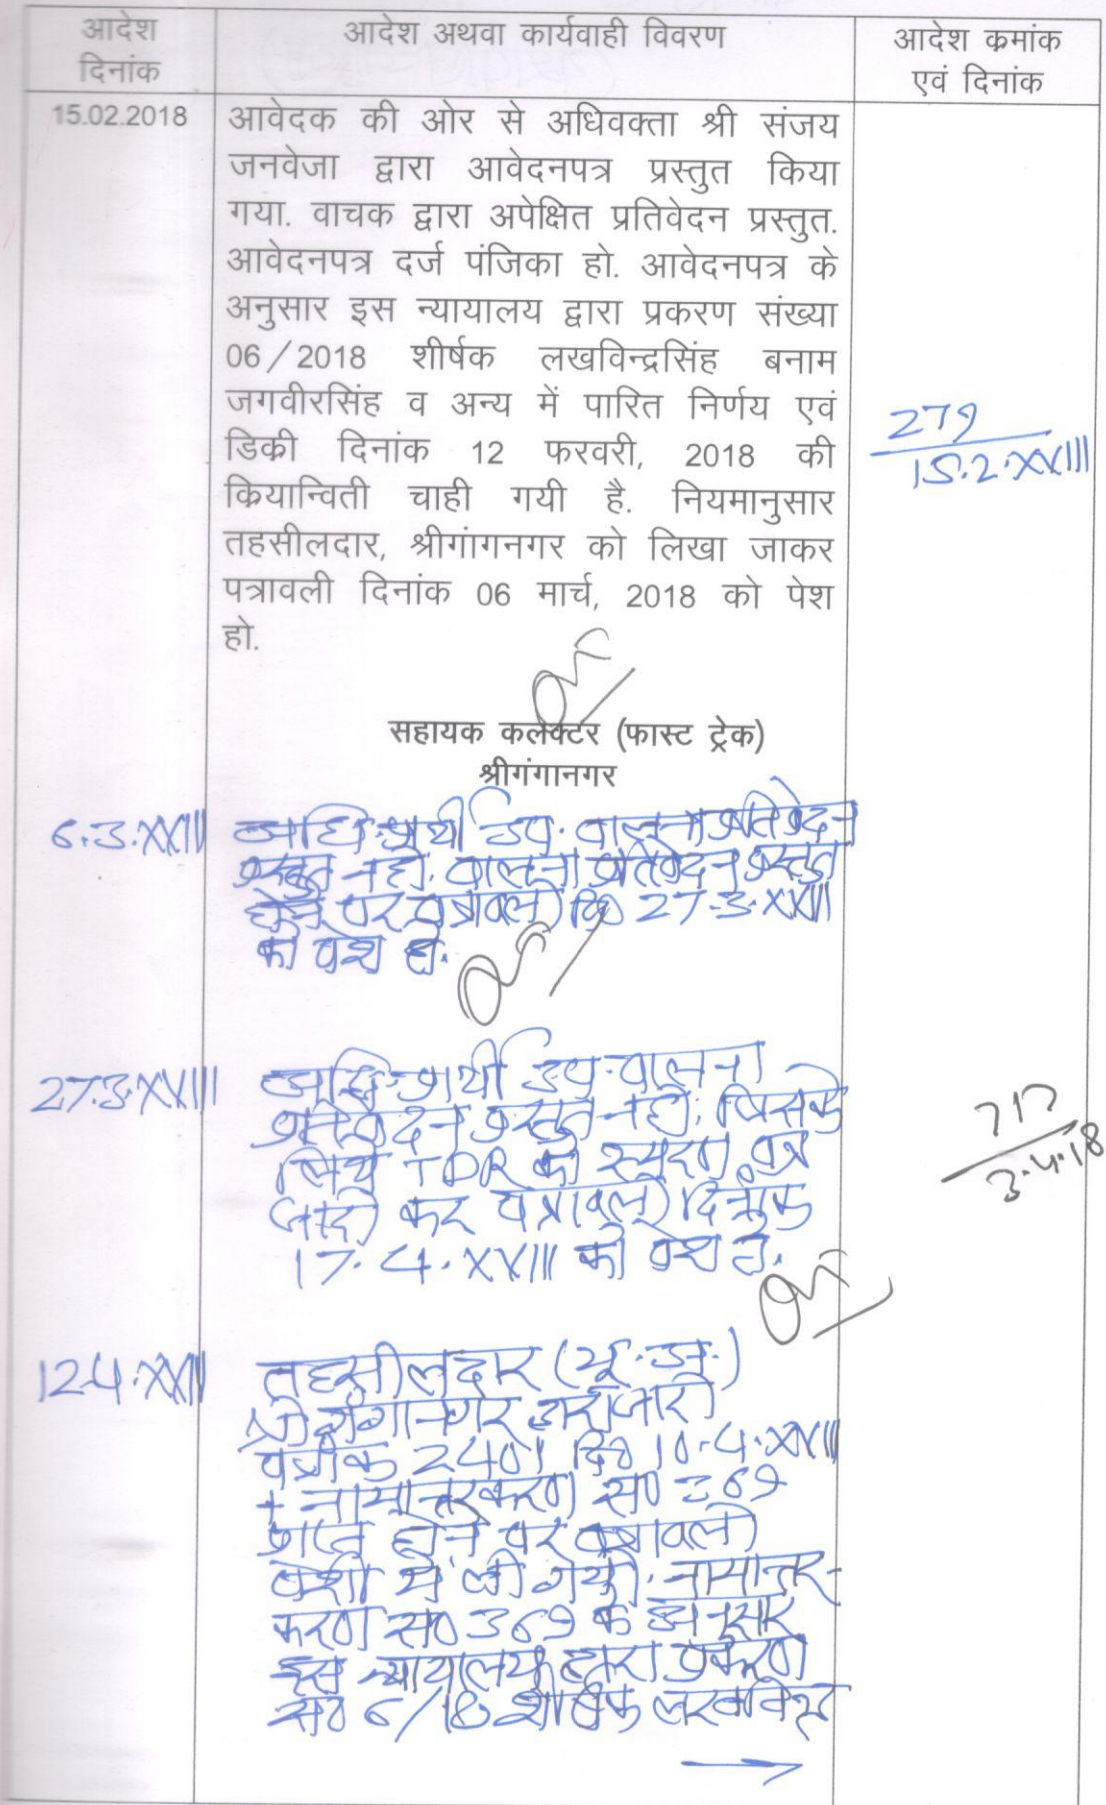 आदेश
दिनांक
आदेश अथवा कार्यवाही विवरण
आदेश कमांक
एवं दिनांक
15.02.2018
आवेदक की ओर से अधिवक्ता श्री संजय
जनवेजा द्वारा आवेदनपत्र प्रस्तुत किया
गया. वाचक द्वारा अपेक्षित प्रतिवेदन प्रस्तुत.
आवेदनपत्र दर्ज पंजिका हो. आवेदनपत्र के
अनुसार इस न्यायालय द्वारा प्रकरण संख्या
06/2018 शीर्षक लखविन्द्रसिंह बनाम
जगवीरसिंह व अन्य में पारित निर्णय एवं
डिकी दिनांक 12 फरवरी, 2018 की
क्रियान्विती चाही गयी है. नियमानुसार
तहसीलदार, श्रीगांगनगर को लिखा जाकर
पत्रावली दिनांक 06 मार्च, 2018 को पेश
हो.
279
15.2.XVIII
सहायक कलेक्टर (फास्ट ट्रेक)
श्रीगंगानगर
6.3.XVIII
अधि. प्रार्थी उप. पालना प्रतिवेदन
प्रस्तुत नहीं. पालना प्रतिवेदन प्रस्तुत
होने पर पत्रावली दि० 27.3.XVIII
को पेश हो.
27.3.XVIII
अधि. प्रार्थी उप. पालना
प्रतिवेदन प्रस्तुत नहीं. जिसके
लिये TDR को स्मरण पत्र
जारी कर पत्रावली दिनांक
17.4.XVIII को पेश हो.
717
3.4.18
12.4.XVIII
तहसीलदार (भू.अ.)
श्रीगंगानगर द्वारा जारी
पत्रांक 2401 दि० 10.4.XVIII
+ नामान्तरकरण सं० 369
प्राप्त होने पर पत्रावली
पेशी में ली गयी. नामान्तर-
करण सं० 369 के अनुसार
इस न्यायालय द्वारा प्रकरण
सं० 6/18 शीर्षक लखविन्द्र